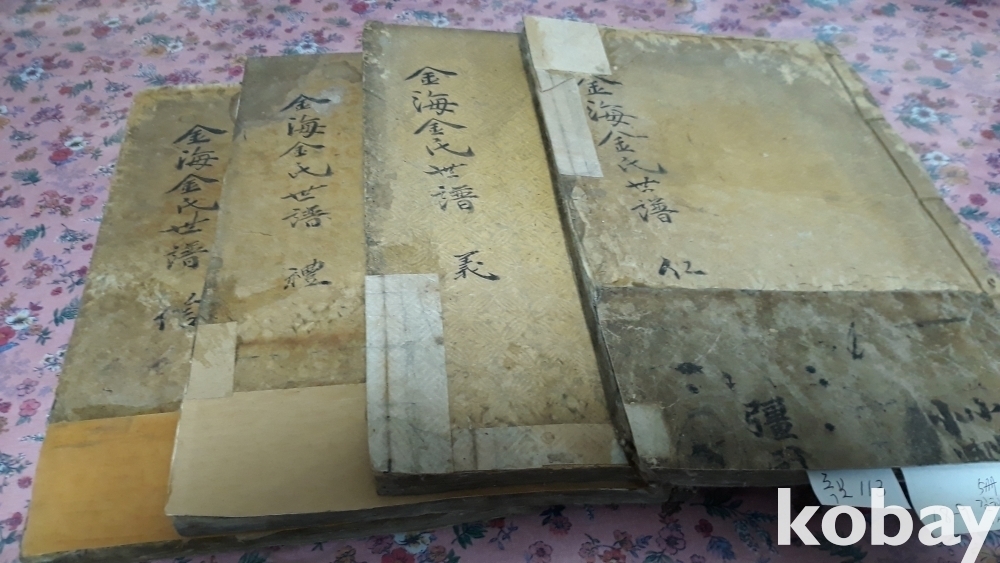 金海金氏世譜 信
金海金氏世譜 禮
金海金氏世譜 義
金海金氏世譜 仁
彊
족보 113
kobay